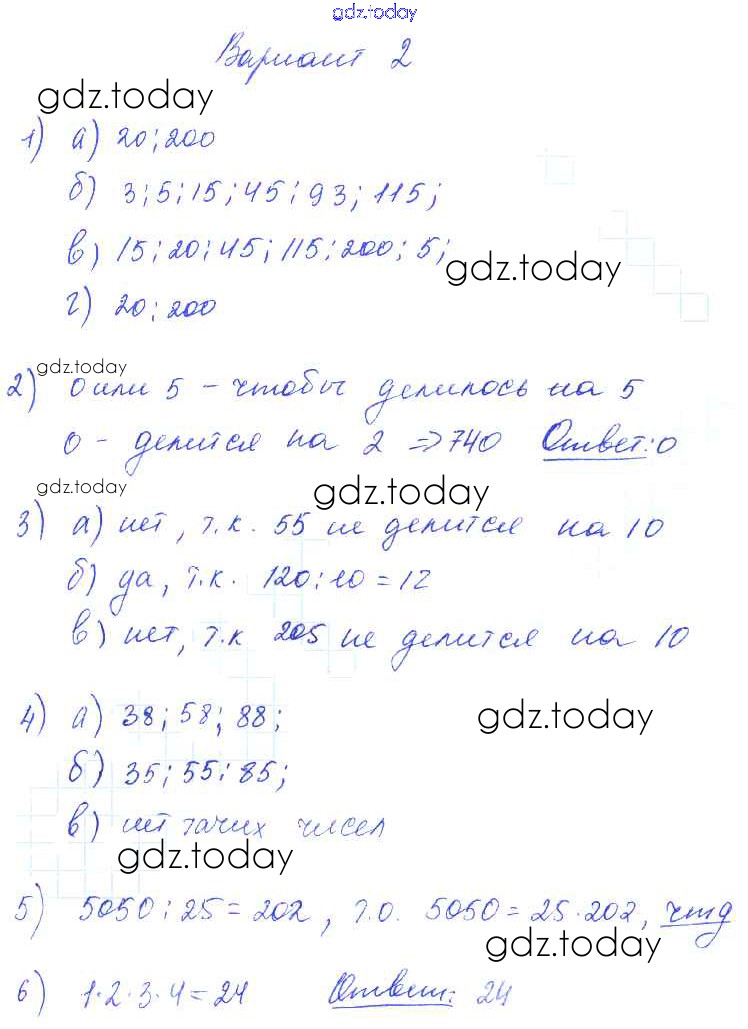 gdz.today
Вариант 2
gdz.today
1) а) 20; 200
б) 3; 5; 15; 45; 93; 115;
в) 15; 20; 45; 115; 200; 5;
gdz.today
г) 20; 200
gdz.today
2) 0 или 5 – чтобы делилось на 5
0 – делится на 2 => 740 Ответ: 0
gdz.today gdz.today
3) а) нет, т.к. 55 не делится на 10
б) да, т.к. 120:10=12
в) нет, т.к 205 не делится на 10
gdz.today
4) а) 38; 58; 88;
б) 35; 55; 85;
в) нет таких чисел
gdz.today
5) 5050:25=202, т.о. 5050=25·202, чтд
gdz.today
6) 1·2·3·4=24 Ответ: 24